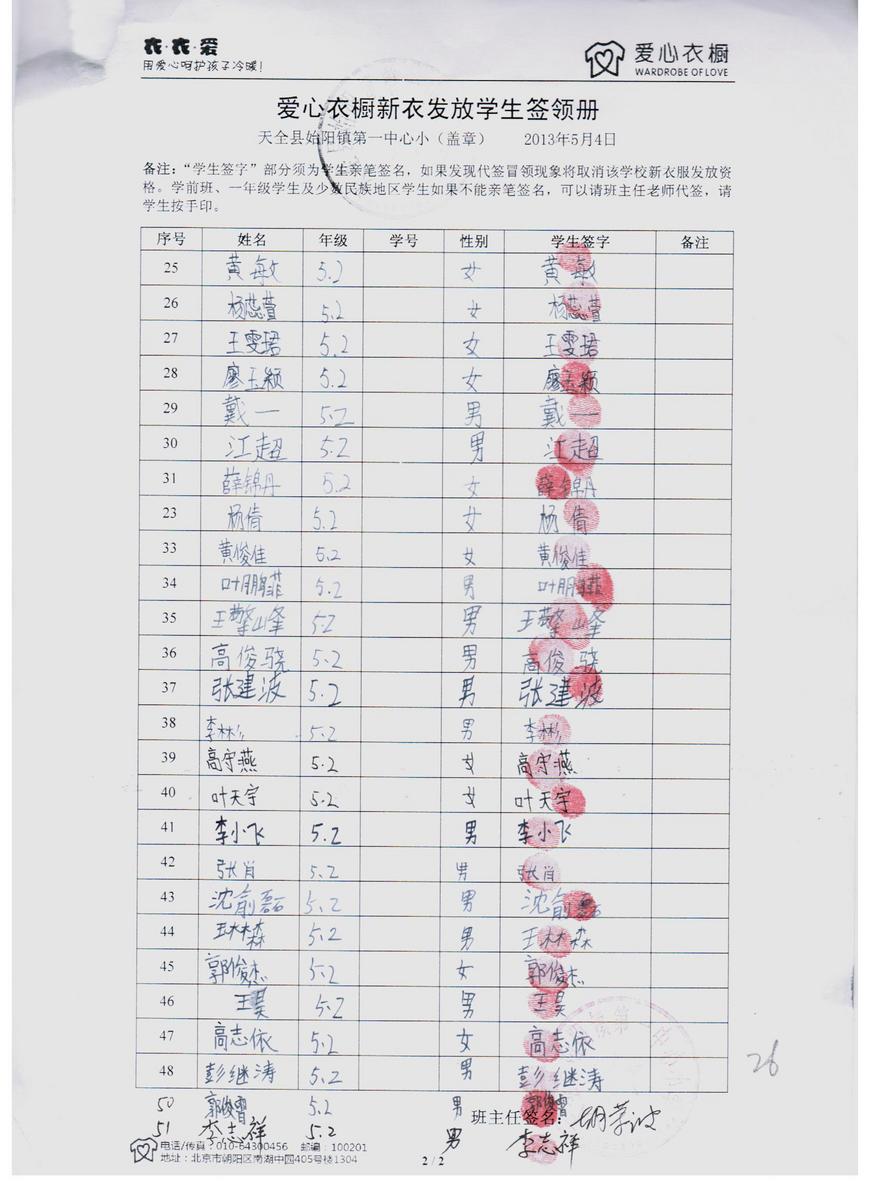 衣·衣·爱
用爱心呵护孩子冷暖!
爱心衣橱
WARDROBE OF LOVE
爱心衣橱新衣发放学生签领册
天全县始阳镇第一中心小（盖章） 2013年5月4日
备注：“学生签字”部分须为学生亲笔签名，如果发现代签冒领现象将取消该学校新衣服发放资
格。学前班、一年级学生及少数民族地区学生如果不能亲笔签名，可以请班主任老师代签，请
学生按手印。
序号 姓名 年级 学号 性别 学生签字 备注
25 黄敏 5.2 女 黄敏
26 杨蕊萱 5.2 女 杨蕊萱
27 王雯珺 5.2 女 王雯珺
28 廖玉颖 5.2 女 廖玉颖
29 戴一 5.2 男 戴一
30 江超 5.2 男 江超
31 薛锦丹 5.2 女 薛锦丹
23 杨倩 5.2 女 杨倩
33 黄俊佳 5.2 女 黄俊佳
34 叶鹏菲 5.2 男 叶鹏菲
35 王擎峰 5.2 男 王擎峰
36 高俊骁 5.2 男 高俊骁
37 张建波 5.2 男 张建波
38 李彬 5.2 男 李彬
39 高守燕 5.2 女 高守燕
40 叶天宇 5.2 女 叶天宇
41 李小飞 5.2 男 李小飞
42 张肖 5.2 男 张肖
43 沈俞磊 5.2 男 沈俞磊
44 王林森 5.2 男 王林森
45 郭俊杰 5.2 女 郭俊杰
46 王昊 5.2 男 王昊
47 高志依 5.2 女 高志依
48 彭继涛 5.2 男 彭继涛
50 5.2 男
班主任签名：
51 李志祥 5.2 男 李志祥
电话/传真：010-64300456 邮编：100201
地址：北京市朝阳区南湖中园405号楼1304
2 / 2
26